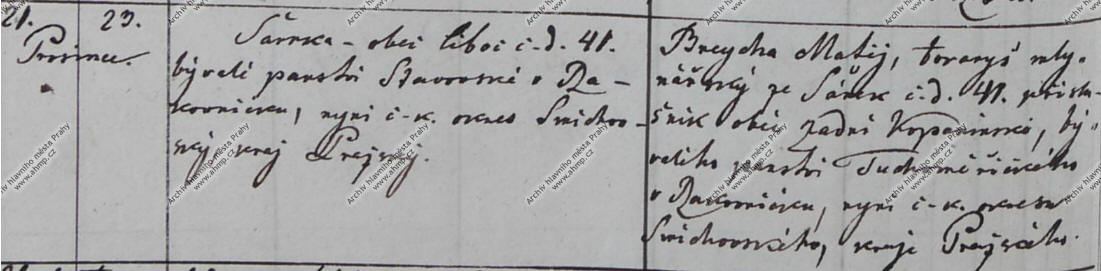 21. 23.
Prosince.
Šárecka – obci Liboci č. d. 41.
bývalé panství Stavovské v Ra-
kovnicku, nyní c-k. okres Smíchov-
ský kraj Pražský.
Brejcha Matěj, tovaryš mly-
nářský ze Šárek č. d. 41. příslu-
šník obce zadní Kopaninské, bý-
valého panství Tuchoměřického
v Rakovnicku, nyní c-k. okresu
Smíchovského, kraje Pražského.
Archiv hlavního města Prahy
www.ahmp.cz